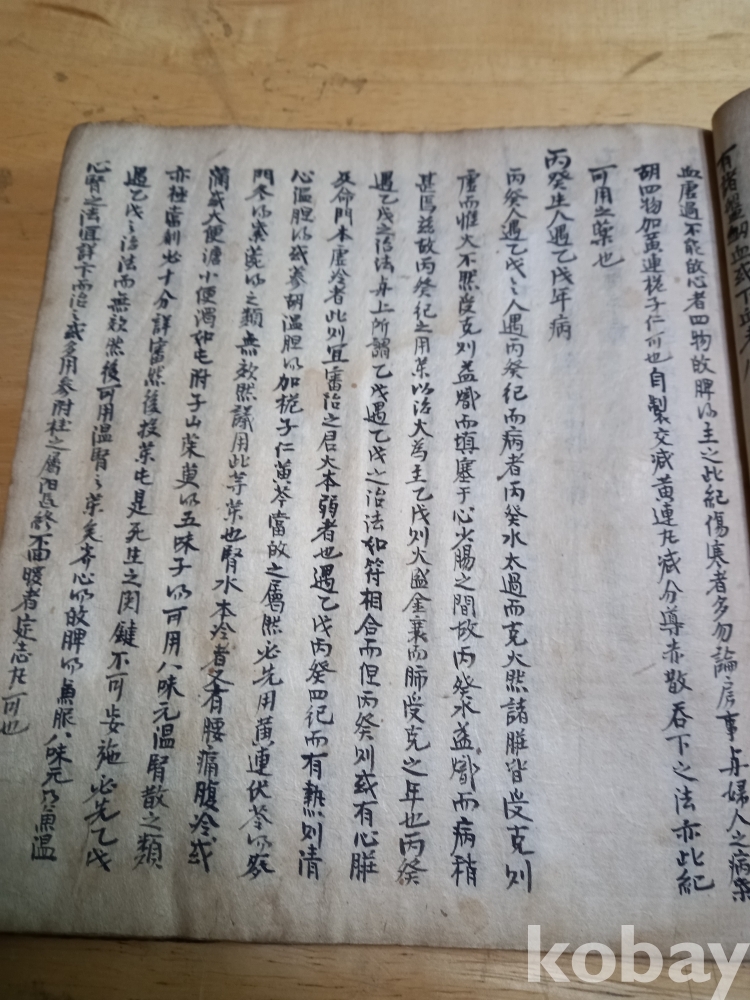 有 血或下血
血虛過不能故心者四物故脾 主之此紀傷寒者多勿論房事与婦人之病柴
胡四物加黃連梔子仁可也自製交減黃連尤減分導赤散吞下之法亦此紀
可用之藥也
丙癸生人遇乙戊年病
丙癸人遇乙戊之人遇丙癸紀而病者丙癸水太過而克火然諸臟皆受克則
虛而惟火不然受克則益鬱而填塞于心少腸之間故丙癸水益鬱而病稍
甚焉玆故丙癸紀之用藥以治火為主乙戊則火盛金衰而肺受克之年也丙癸
遇乙戊之治法与上所謂乙戊遇乙戊之治法如符相合而但丙癸則或有心臟
及命門本虛冷者此則宜審治之君火本弱者也遇乙戊丙癸四紀而有熱則清
心溫胆 或蔘胡溫胆 加梔子仁黃芩當故之屬然必先用黃連伏苓 麥
門冬 紫菀 之類無效然議用此等藥也腎水本冷者又有腰痛腹冷或
滿或大便溏小便濁如屯附子山茱萸 五味子 可用八味元溫腎散之類
亦極當劑必十分詳審然後投藥屯是死生之関鍵不可妄施必先乙戊
遇乙戊之治法而無效然後可用溫腎之藥矣 心 故脾 兼服八味元 兼溫
心腎之法宜詳下而治之或多用參附桂之屬 終不回暖者定志丸可也
kobay